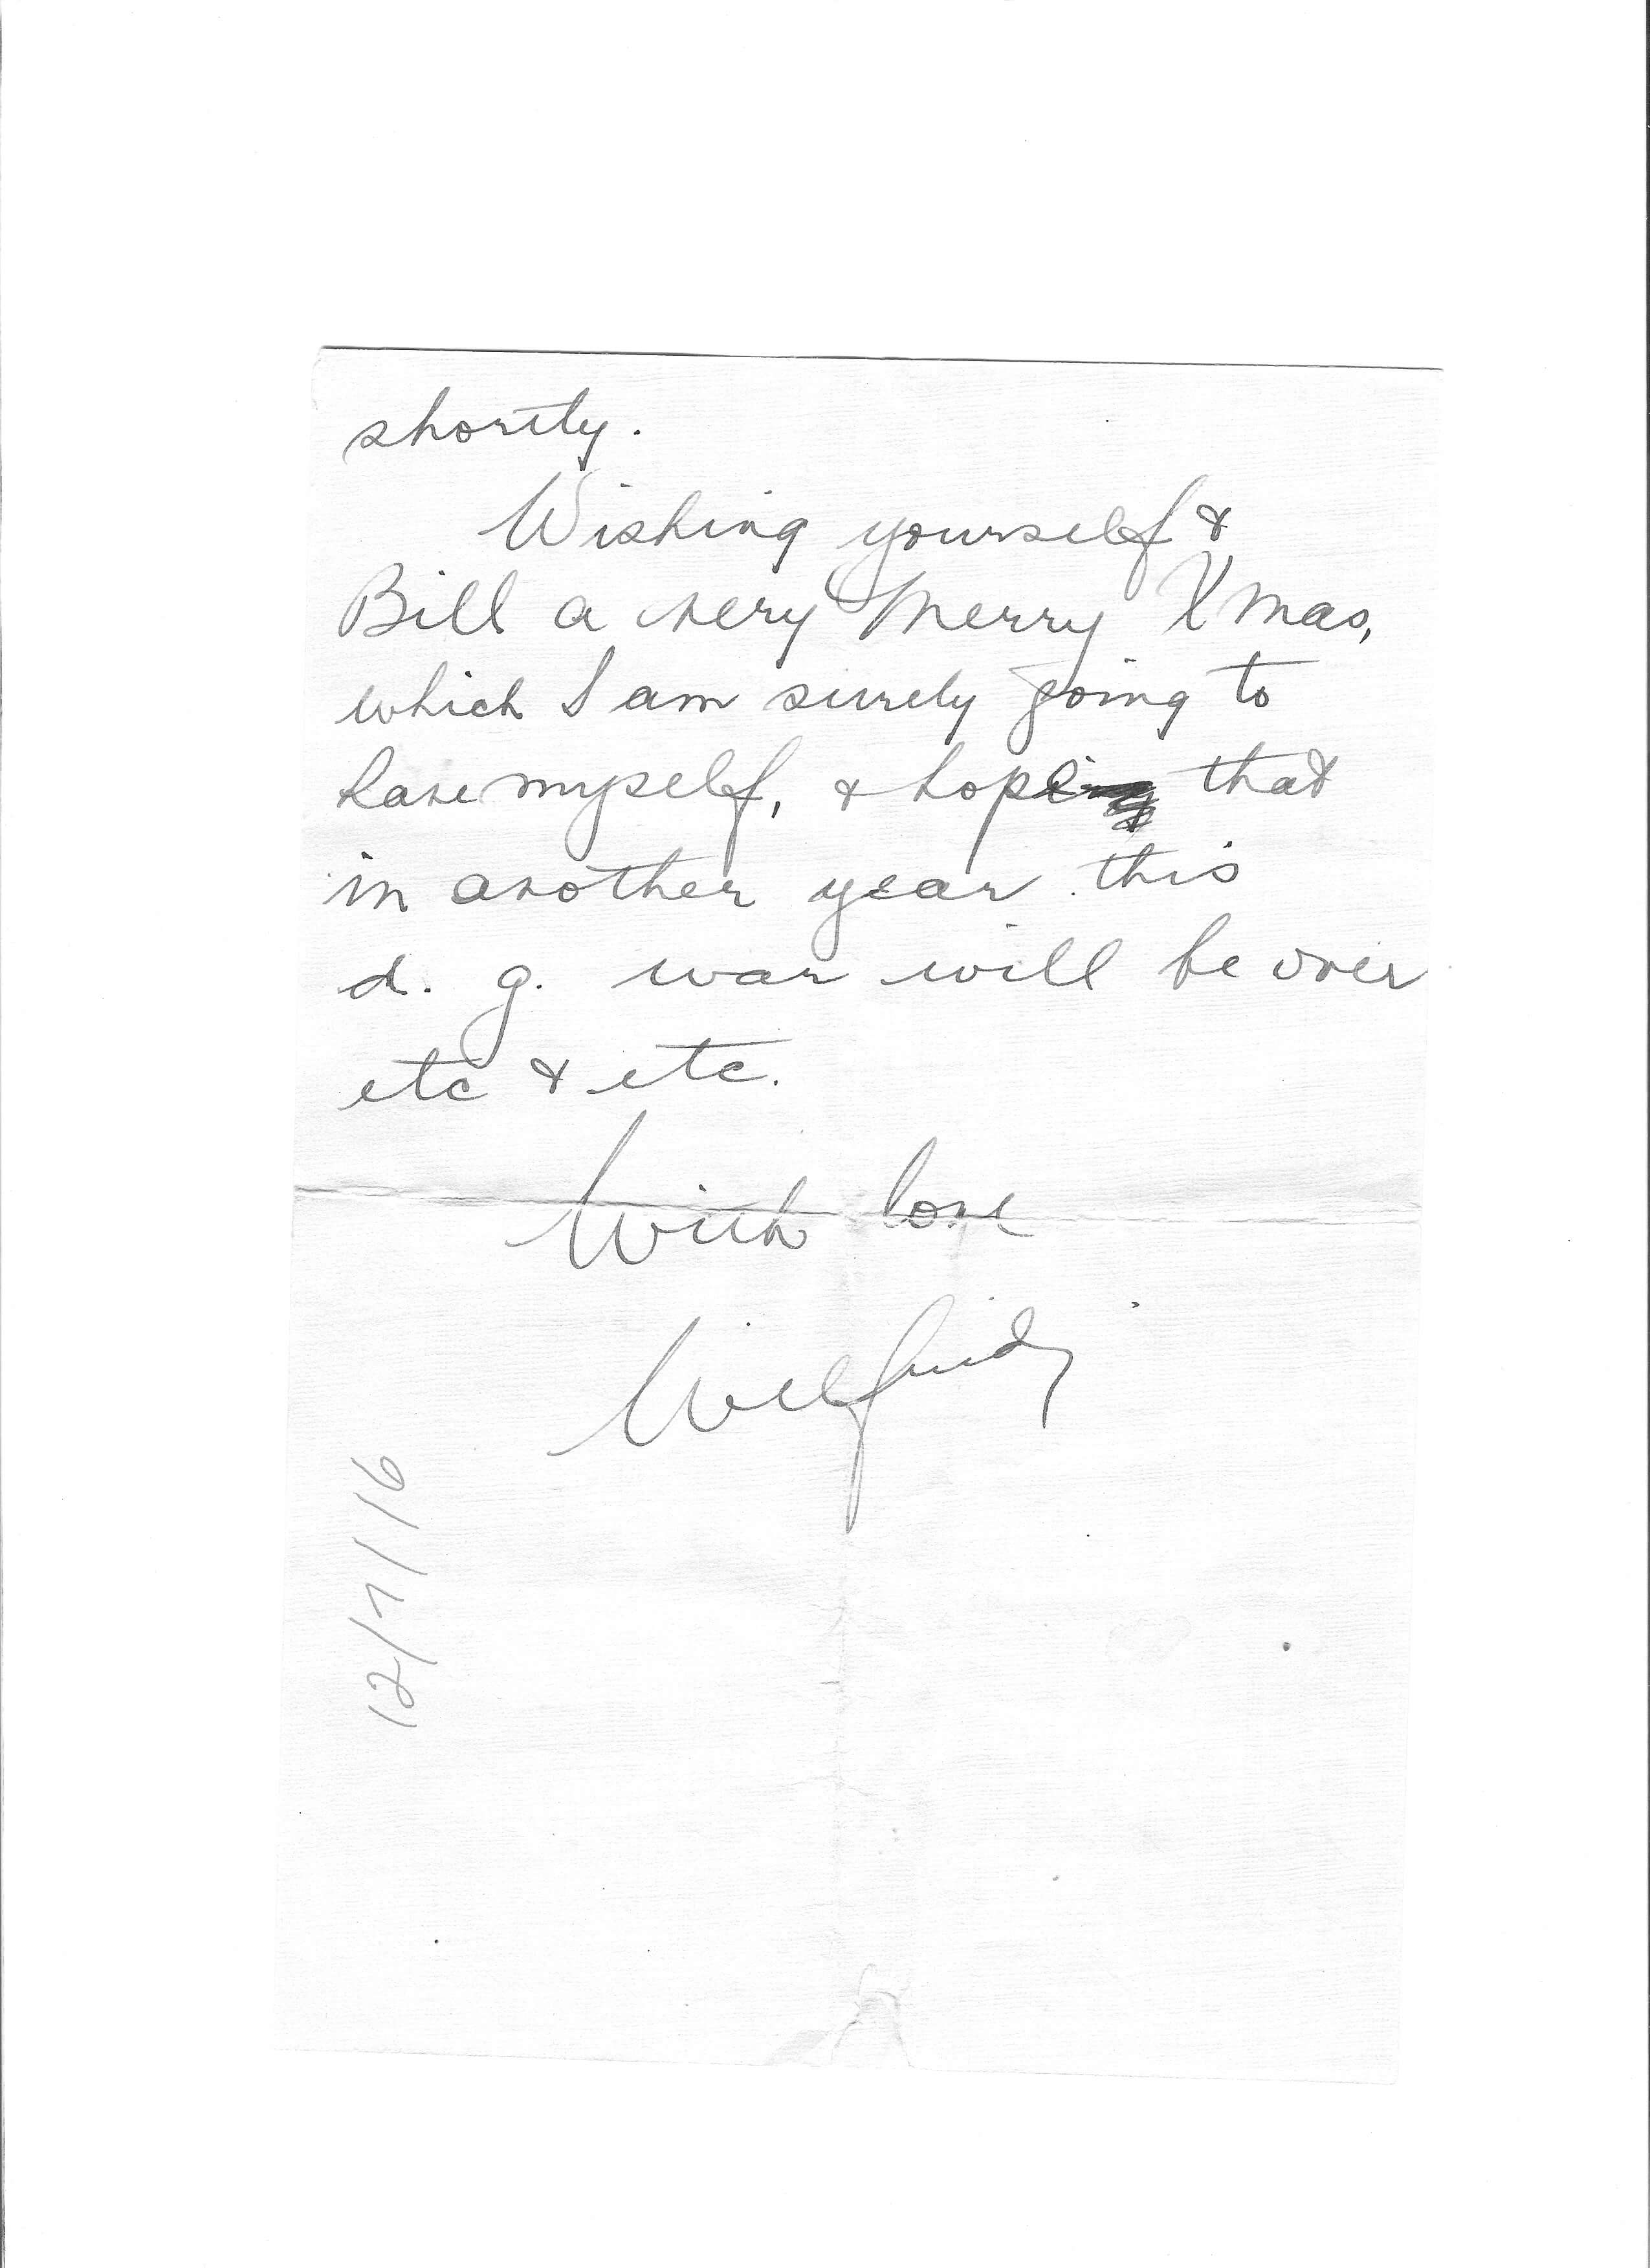 shortly.
Wishing yourself &
Bill a very Merry Xmas,
which I am surely going to
have myself, & hope that
in another year this
d. g. war will be over
etc & etc.
With love
Wilfrid,
12/7/16